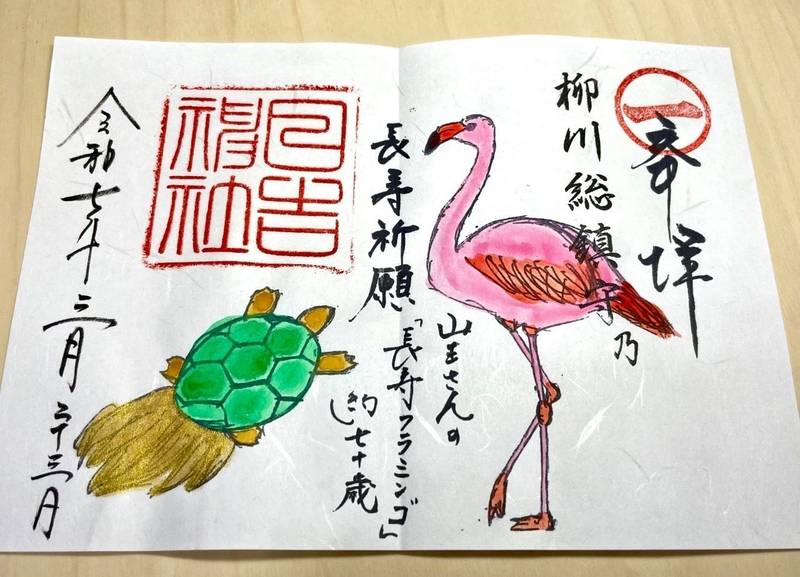 一
奉拝
柳川総鎮守乃
山王さんの
「長寿フラミンゴ」
約七十歳
長寿祈願
日吉
神社
令和七年三月二十三日